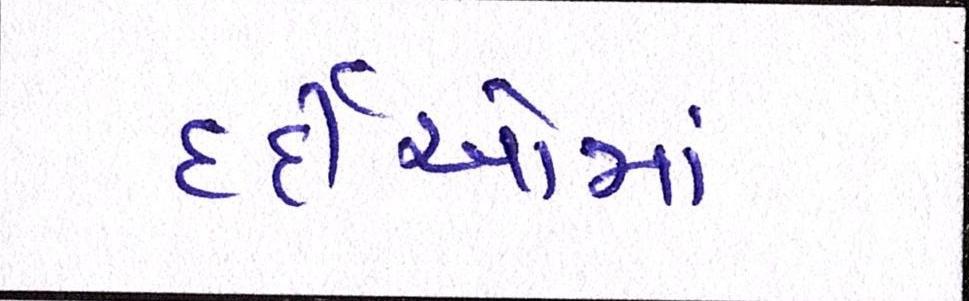 દર્દીઓમાં